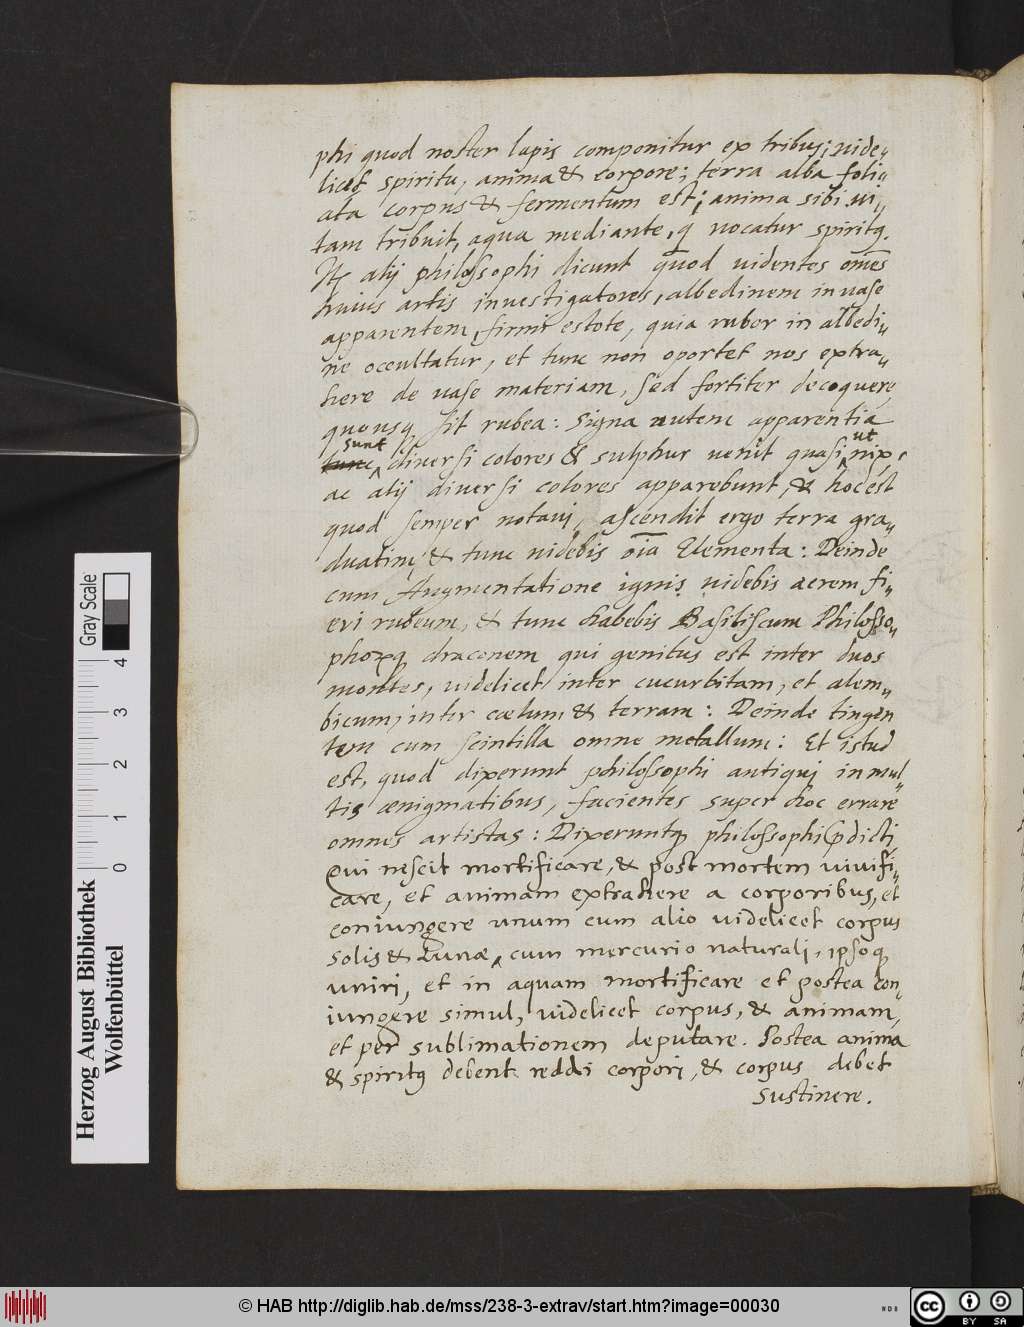 phi quod noster lapis componitur ex tribus; uide„
licet spiritu, anima & corpore; terra alba foli„
ata corpus & fermentum est; anima sibi ui„
tam tribuit, aqua mediante, q̄ uocatur spiritꝰ.
Itē alij philosophi dicunt quod uidentes om̄es
huius artis inuestigatores, albedinem in uase
apparentem, firmi estote, quia rubor in albedi„
ne occultatur, et tunc non oportet nos extra„
here de uase materiam, sed fortiter decoquere,
quousq̨ sit rubea: Signa autem apparentia
sunt ut
tunc diuersi colores & sulphur uenit quasi nix,
ac alij diuersi colores apparebunt, & hoc est
quod semper notaui, ascendit ergo terra gra„
duatim, & tunc uidebis oīa Elementa: Deinde
cum Augmentatione ignis uidebis aerem fi„
eri rubeum, & tunc habebis Basiliscum Philoso„
phorꝫq̨ draconem qui genitus est inter duos
montes, uidelicet inter cucurbitam, et alem„
bicum, inter cœlum & terram: Deinde tingen
tem cum scintilla omne metallum: Et istud
est, quod dixerunt philosophi antiqui in mul„
tis ænigmatibus, facientes super hoc errare
omnes artistas: Dixeruntq̨ philosophi p̄dicti,
Qui nescit mortificare, & post mortem uiuifi„
care, et animam extrahere a corporibus, et
coniungere unum cum alio uidelicet corpus
Solis & Lunæ, cum mercurio naturali, ipsoq̨
uniri, et in aquam mortificare et postea con„
iungere simul, uidelicet corpus, & animam,
et per sublimationem deputare. Postea anima
& spiritꝰ debent reddi corpori, & corpus debet
sustinere.
Gray Scale
4
3
2
1
0
Herzog August Bibliothek
Wolfenbüttel
© HAB http://diglib.hab.de/mss/238-3-extrav/start.htm?image=00030
cc
BY SA